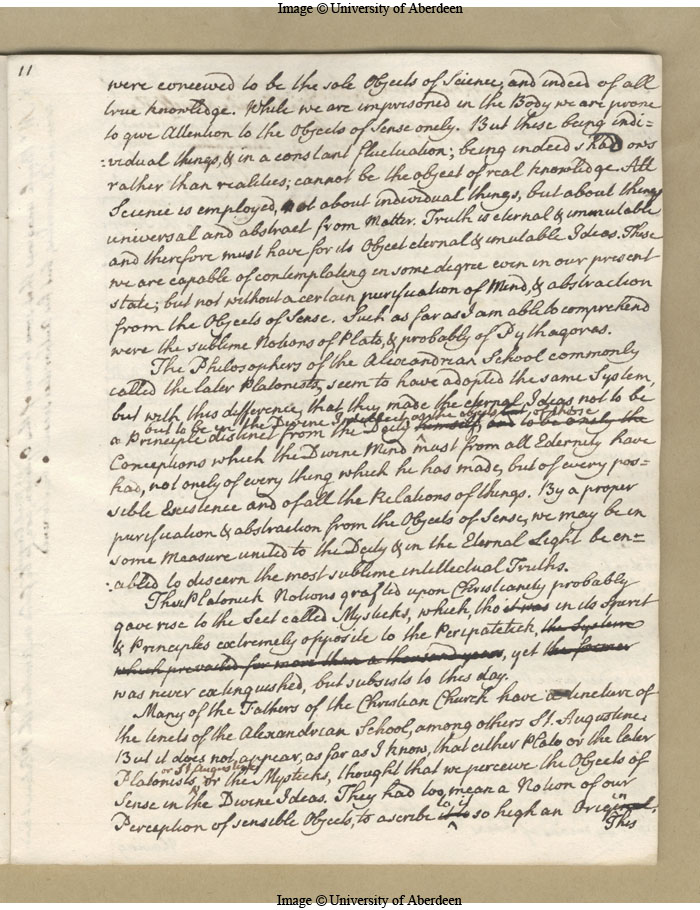 Image © University of Aberdeen
11
were conceived to be the sole Objects of Science, and indeed of all
true knowledge. While we are imprisoned in the Body we are prone
to give Attention to the Objects of Sense onely. But these being indi=
:vidual things, & in a constant fluctuation; being indeed shadows
rather than realities; cannot be the object of real knowledge. All
Science is employed, not about individual things, but about things
universal and abstract from Matter. Truth is eternal & immutable
and therefore must have for its Object eternal & imutable Ideas. These
we are capable of contemplating in some degree even in our present
state; but not without a certain purification of Mind, & abstraction
from the Objects of Sense. Such as far as I am able to comprehend
were the sublime Notions of Plato, & probably of Pythagoras.
The Philosophers of the Alexandrian School commonly
called the later Platonists, seem to have adopted the same System,
but with this difference, that they made the eternal Ideas not to be
but to be in the Divine Intellect as the objects of those
a Principle distinct from the Deity himself, and to be onely the
Conceptions which the Divine Mind must from all Eternity have
had, not onely of every thing which he has made, but of every pos=
sible Existence and of all the Relations of things. By a proper
purification & abstraction from the Objects of Sense, we may be in
some Measure united to the Deity & in the Eternal Light be en=
:abled to discern the most sublime intellectual Truths.
These Platonick Notions grafted upon Christianity probably
gave rise to the Sect called Mysticks, which, tho it was in its Spirit
& Principles extremely opposite to the Peripatetick, the System
which prevailed for more than a thousand years, yet the former
was never extinguished, but subsists to this day.
Many of the Fathers of the Christian Church have a tincture of
the tenets of the Alexandrian School, among others St. Augustine.
But it does not appear, as far as I know, that either Plato or the later
or St Augustine
Platonists, or the Mysticks, thought that we perceive the Objects of
Sense in the Divine Ideas. They had too mean a Notion of our
Perception of sensible Objects, to ascribe to it so high an Origin.
This
Image © University of Aberdeen